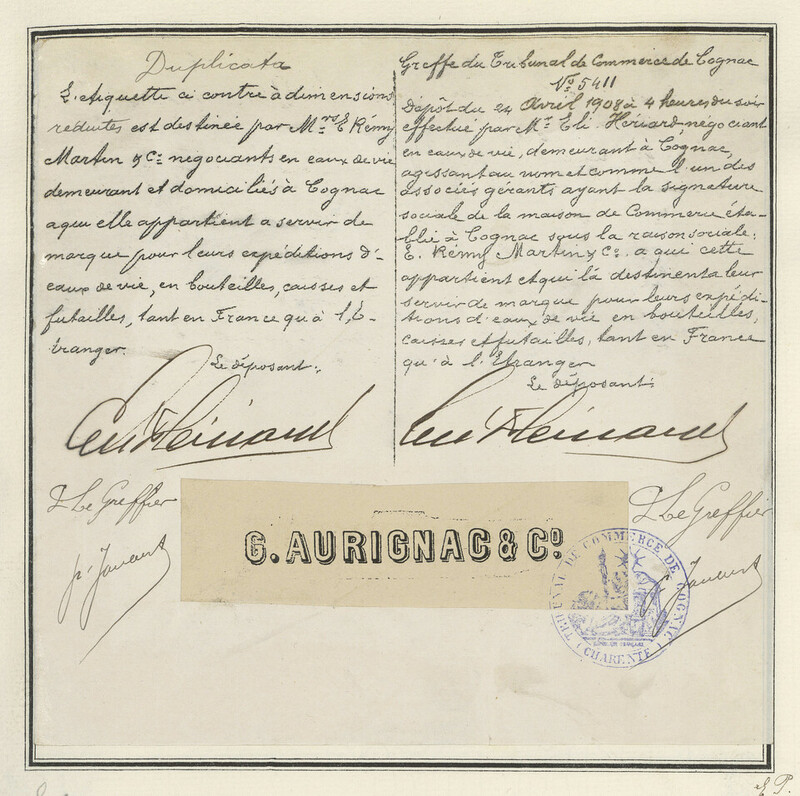 Duplicata
L'etiquette ci contre à dimensions
réduites est destinée par Mrs E. Rémy
Martin & Cie négociants en eaux de vie
demeurant et domiciliés à Cognac
a qui elle appartient a servir de
marque pour leurs expéditions d'
eaux de vie, en bouteilles, caisses et
futailles, tant en France qu'à l'E-
tranger.
Le déposant:
Greffe du Tribunal de Commerce de Cognac
No 5411
Dépôt du 24 Avril 1908 à 4 heures du soir
effectué par Mr Eli Hériard, négociant
en eaux de vie, demeurant à Cognac,
agissant au nom et comme l'un des
associés gérants ayant la signature
sociale de la maison de Commerce éta-
blie à Cognac sous la raison sociale:
E. Rémy Martin & Co. a qui cette
appartient et qui la destinent a leur
servir de marque pour leurs expédi-
tions d'eaux de vie en bouteilles,
caisses et futailles, tant en France
qu'à l'Etranger
Le déposant:
Le Greffier
Le Greffier
G. AURIGNAC & Co.
TRIBUNAL DE COMMERCE DE COGNAC
(CHARENTE)